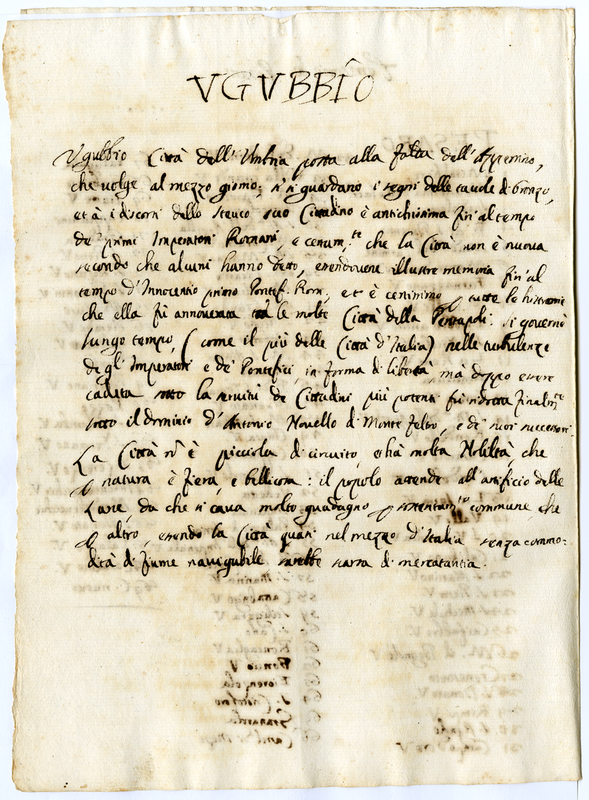 VGVBBIO
Vgubbio Città dell'Umbria posta alla falda dell'Appennino,
che volge al mezzo giorno; si si guardano i segni delle tavole di bronzo,
et à i discorsi dello steuco suo Cittadino è antichissima fin'al tempo
de' primi Imperatori Romani, e certam.te che la Città non è nuova
secondo che alcuni hanno detto, essendovene illustre memoria fin'al
tempo d'Innocentio primo Pontef. Rom, et è certissimo p tutte le historie
che ella fù annoverata trà le molte Città della Pentapoli. Si governò
lungo tempo, (come il più delle Città d'Italia) nelle turbulenze
degl'Imperatori e de' Pontefici, in forma di libertà, mà doppo essere
caduta sotto la servitù de Cittadini più potenti fù ridotta finalm.te
sotto il dominio d'Antonio Novello di Monte Feltro, e de' suoi successori.
La Città nō è picciola di circuito, et hà molta Nobiltà che
p natura è fiera, e bellicosa: il popolo attende all'artificio delle
Lane, da che si cava molto guadagno p sostentam.to commune, che
p altro, essendo la Città quasi nel mezzo d'Italia senza commo-
dità di fiume navigabile sarebbe scarsa di mercatantia.